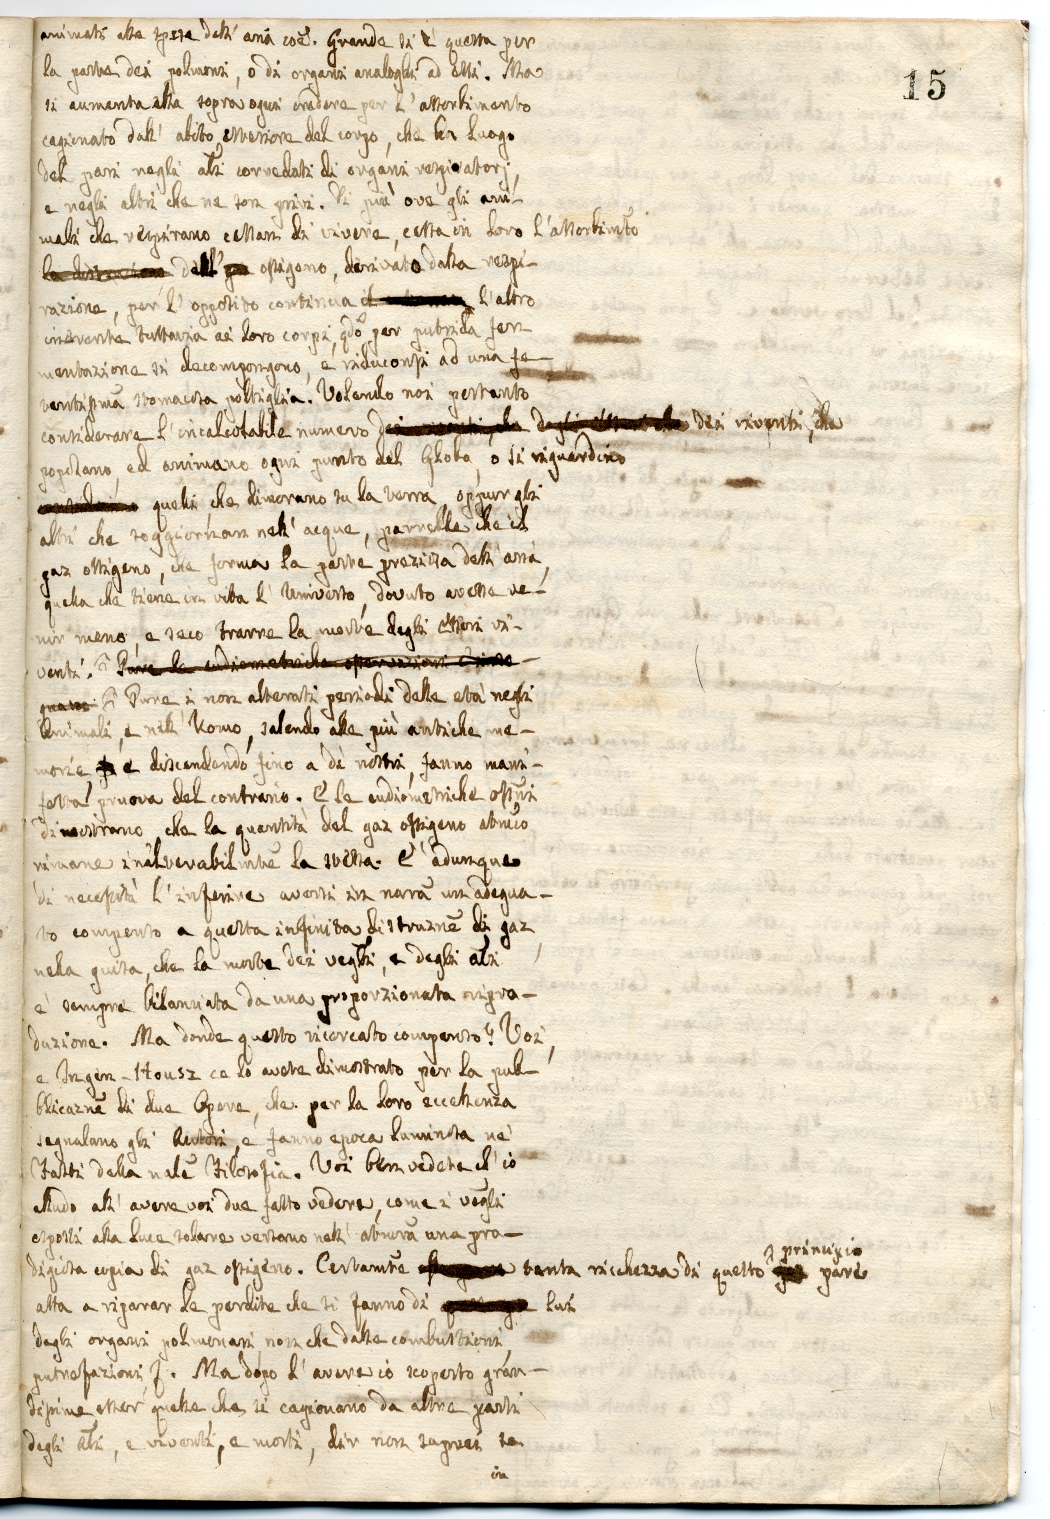 15
animati alle spese dell' aria coē. Grande si è questa per
la parte dei polmoni, o di organi analoghi ad essi. Ma
si aumenta essa sopra ogni credere per l'assorbimento
cagionato dall' abito esteriore del corpo, che ha luogo
del pari negli aĪi corredati di organi respiratorj,
e negli altri che ne son privi. Di più ove gli ani-
mali che respirano cessan di vivere, cessa in loro l'assorbimto
dell' ossigeno, derivato dalla respi-
razione, per l' opposito continua l'altro
inerente tuttavia ai loro corpi, qdo per putrida fer-
mentazione si decompongono, e riduconsi ad una fe-
tentissma stomacosa poltiglia. Volendo noi pertanto
considerare l'incalcolabile numero dei viventi, che
popolano, ed animano ogni punto del Globo, o si riguardino
quelli che dimorano su la terra, oppur gli
altri che soggiornan nell' acque, parrebbe che il
gaz ossigeno, che forma la parte preziosa dell' aria,
quella che tiene in vita l' Universo, dovuto avesse ve-
nir meno, e seco trarre la morte degli Esseri vi-
venti. Pure le eudiometriche osservazioni
Pure i non alterati periodi delle età negli
Animali, e nell' Uomo, salendo alle più antiche me-
morie, e discendendo fino a dì nostri, fanno mani-
festa pruova del contrario. E le eudiometriche ossni
dimostrano, che la quantità del gaz ossigeno atmco
rimane inalterabilmte la stessa. E' adunque
di necessità l' inferire aversi in narā un adegua-
to compenso a questa infinita distruzne di gaz,
nella guisa, che la morte dei vegli, e degli aĪi
è sempre bilanciata da una proporzionata ripro-
duzione. Ma donde questo ricercato compenso? Voi,
e Ingen-Housz ce lo avete dimostrato per la pub-
blicazne di due Opere, che per la loro eccellenza
segnalano gli Autori, e fanno epoca luminosa ne'
Fasti della nale Filosofia. Voi ben vedete ch' io
alludo all' avere voi due fatto vedere, come i vegli
esposti alla luce solare versano nell' atmera una pro-
digiosa copia di gaz ossigeno. Certamte tanta ricchezza di questo principio pare
atta a riparar le perdite che si fanno di lui
dagli organi polmonari non che dalle combustioni,
putrefazioni &. Ma dopo l' avere io scoperto gran-
dissime esser quelle che si cagionano da altre parti
degli aĪi, e viventi, e morti, dir non saprei se
in